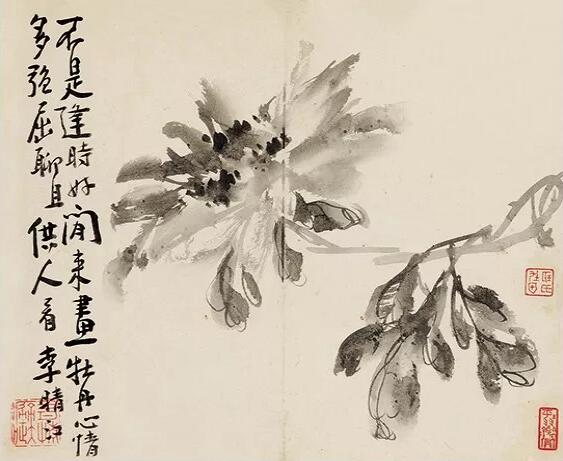 不是逢時好閒來畫牡丹心情
多強屈聊且供人看李晴江